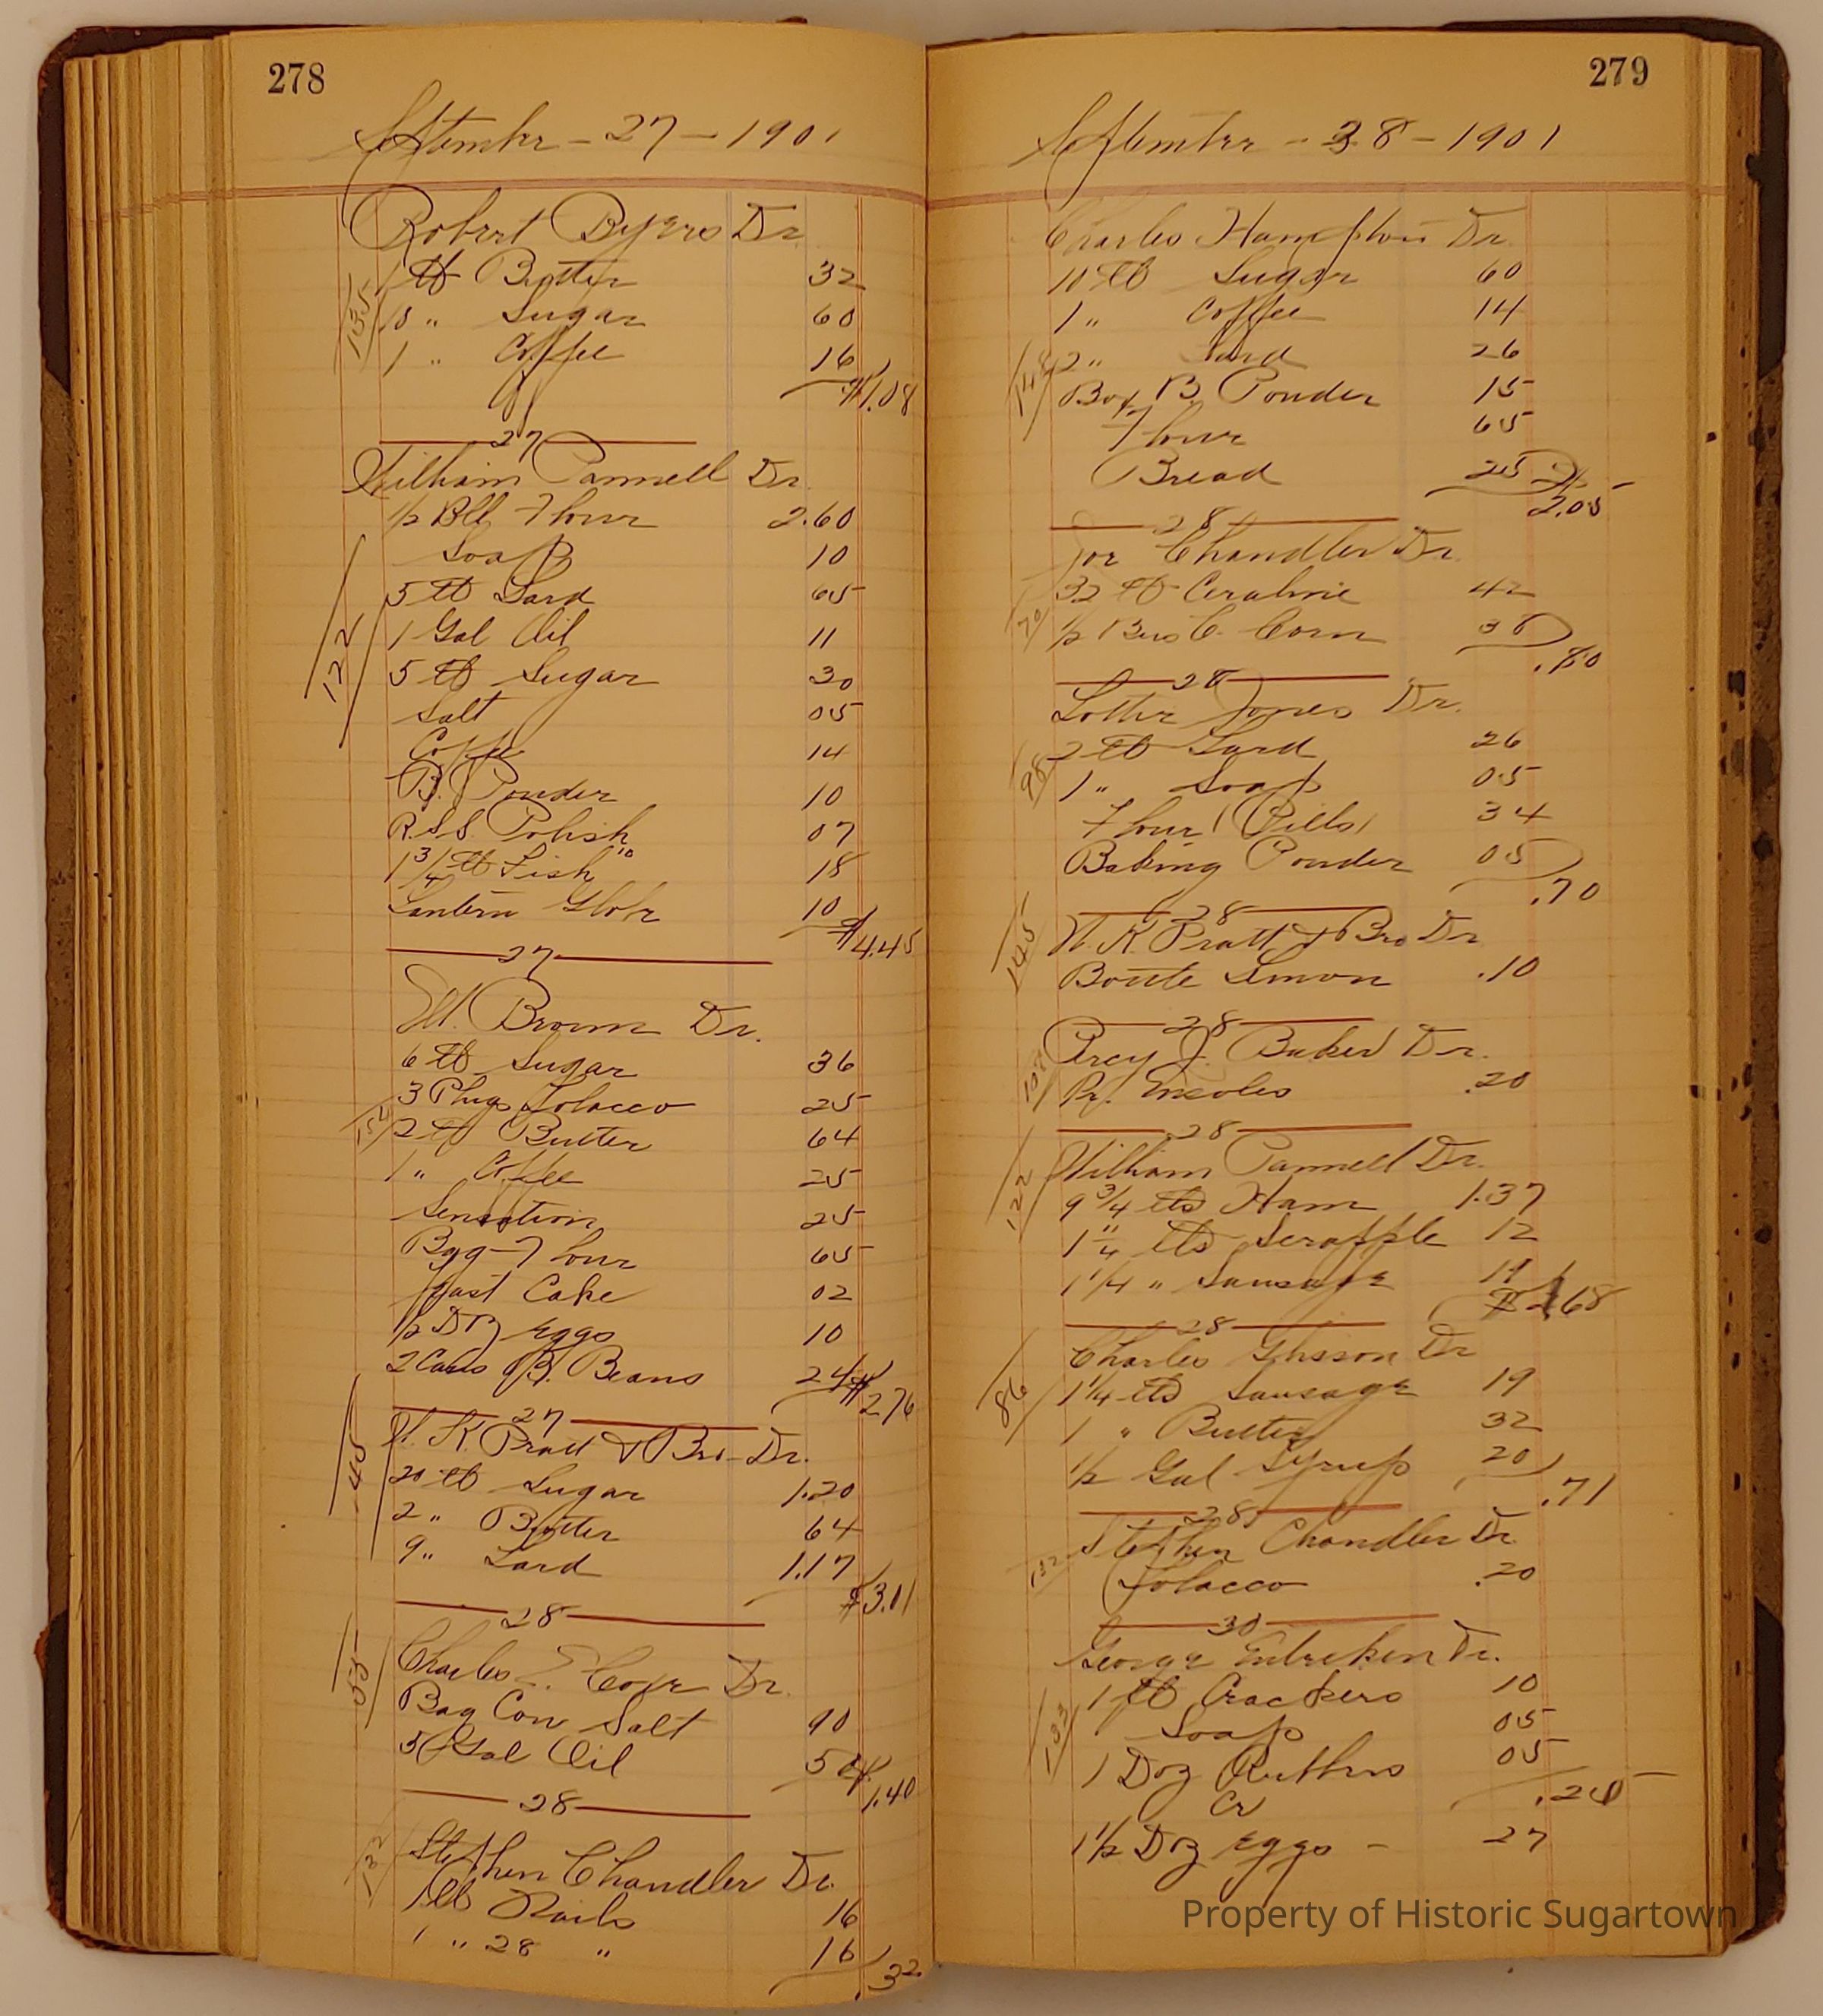 278
September - 27 - 1901
Robert Byers Dr
135
1 lb Butter 32
10 " Sugar 60
1 " Coffee 16
$1.08
27
William Pannell Dr.
1/2 Bbl Flour 2.60
Soap 10
5 lb Lard 65
122
1 Gal Oil 11
5 lb Sugar 30
Salt 05
Coffee 14
B. Powder 10
R.S.S. Polish 07
1 3/4 lb Fish 18
Lantern Globe 10
$4.45
27
W. Brown Dr.
6 lb Sugar 36
3 Plugs Tobacco 25
152
2 lb Butter 64
1 " Coffee 25
Sensation 25
Bag Flour 65
Yeast Cake 02
1/2 Doz Eggs 10
2 Cans B. Beans 24
$2.76
27
W. K. Pratt & Bro Dr.
20 lb Sugar 1.20
2 " Butter 64
9 " Lard 1.17
$3.01
28
Charles Dr.
Bag Cow Salt 90
5 Gal Oil 50
1.40
28
132
Stephen Chandler Dr.
1 lb Nails 16
1 " 28 " 16
.32
279
September - 28 - 1901
Charles Hampton Dr
10 lb Sugar 60
1 " Coffee 14
148
2 " Lard 26
Box B. Powder 15
Flour 65
Bread 25
$2.05
28
Joe Chandler Dr.
32 lb Ceraline 42
70
1/2 Bus C. Corn 38
.80
28
Lotter Jones Dr.
98
2 lb Lard 26
1 " Soap 05
Flour (Pills) 34
Baking Powder 05
.70
28
145
W. K. Pratt & Bro Dr
Bottle Lemon .10
28
Percy J. Baker Dr.
Pr. Insoles .20
28
122
William Pannell Dr.
9 3/4 lbs Ham 1.37
1 1/4 lbs Scrapple 12
1 1/4 " Sausage 19
$1.68
28
Charles Glisson Dr
86
1 1/4 lbs Sausage 19
1 " Butter 32
1/2 Gal Syrup 20
.71
28
132
Stephen Chandler Dr.
Tobacco .20
30
George Entreken Dr.
133
1 lb Crackers 10
Soap 05
1 Doz Rubbers 05
.20
Cr
1 1/2 Doz Eggs - 27
Property of Historic Sugartown